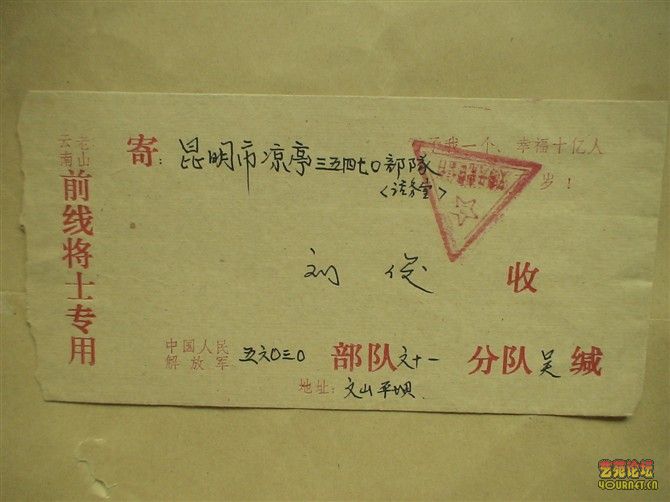 云南老山
前线将士专用
寄：昆明市凉亭三五四七〇部队
〈话务室〉
亏我一个、幸福十亿人
岁！
刘俊 收
中国人民解放军 五六〇三〇 部队 文十一 分队 吴 缄
地址：文山平坝
艺苑论坛
YOURNET.CN